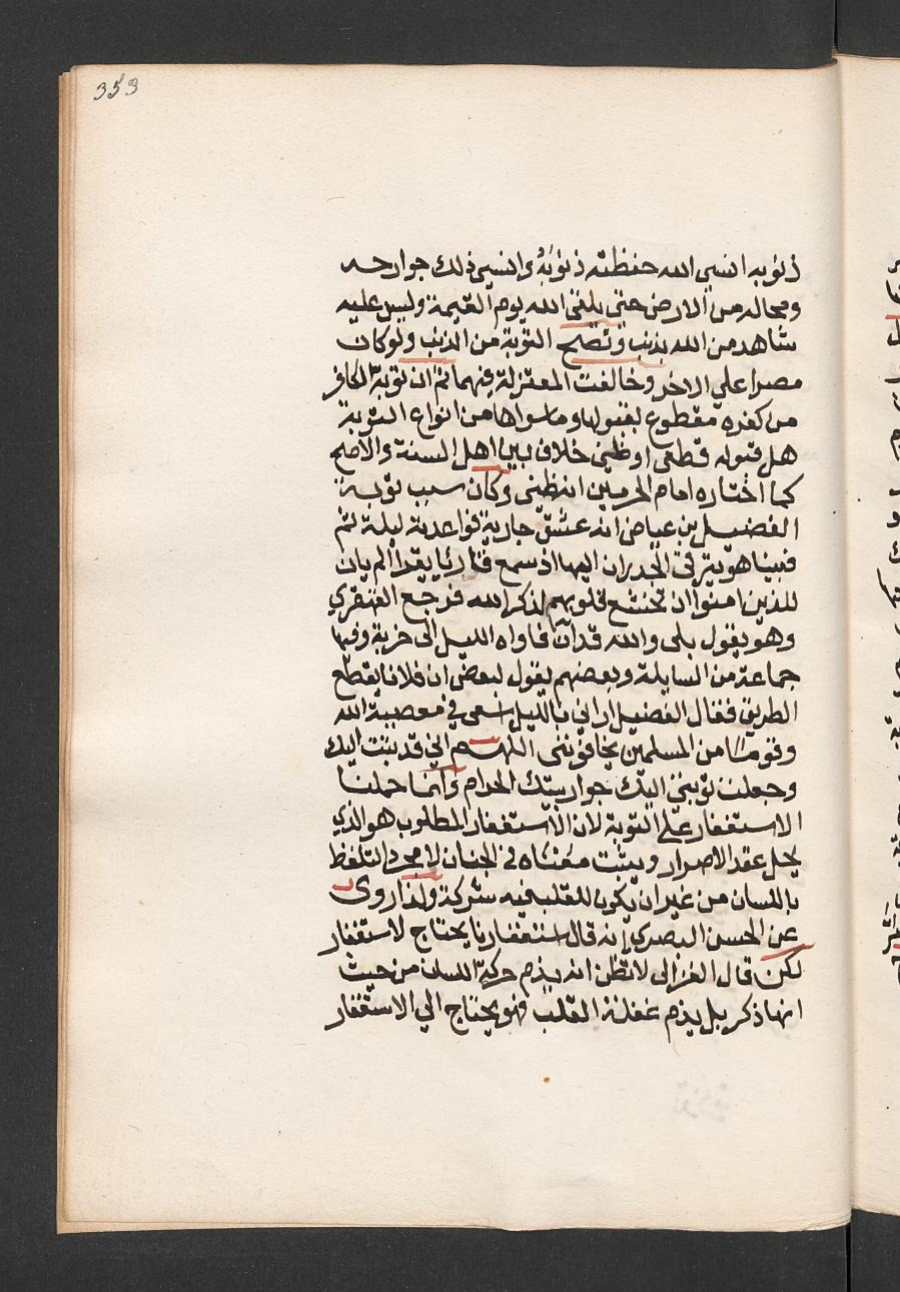 353
ذنوبه انسى الله حفظته ذنوبه وانسى ذلك جوارحه
ومحاله من الارض حتى يلقى الله يوم القيمة وليس عليه
شاهد من الله بذنب وتصح التوبة من الذنب ولو كان
مصرا على الاخر وخالفت المعتزلة فيهما ثم ان توبة الكافر
من كفره مقطوع بقبولها وما سواها من انواع التوبة
هل قبوله قطعي او ظني خلاف بين اهل السنة والاصح
كما اختاره امام الحرمين انه ظني وكان سبب توبة
الفضيل بن عياض انه عشق جارية فواعدته ليلة ثم
فبينا هو يترقى الجدران اليها اذ سمع قارئا يقرا الم يان
للذين امنوا ان تخشع قلوبهم لذكر الله فرجع القهقري
وهو يقول بلى والله قد ان فاواه الليل الى خربة وفيها
جماعة من السايلة وبعضهم يقول لبعض ان فلانا يقطع
الطريق فقال الفضيل اراني بالليل اسعى في معصية الله
وقوما من المسلمين يخافونني اللهم اني قد تبت اليك
وجعلت توبتي اليك جوار بيتك الحرام وانما حملنا
الاستغفار على التوبة لان الاستغفار المطلوب هو الذي
يحل عقد الاصرار ويثبت معناه في الجنان لا مجرد التلفظ
باللسان من غير ان يكون للقلب فيه شركة ولذا روى
عن الحسن البصري انه قال استغفارنا يحتاج لاستغفار
لكن قال الغزالى لا تظن انه يذم حركة اللسان من حيث
انها ذكر بل يذم غفلة القلب فهو يحتاج الي الاستغفار